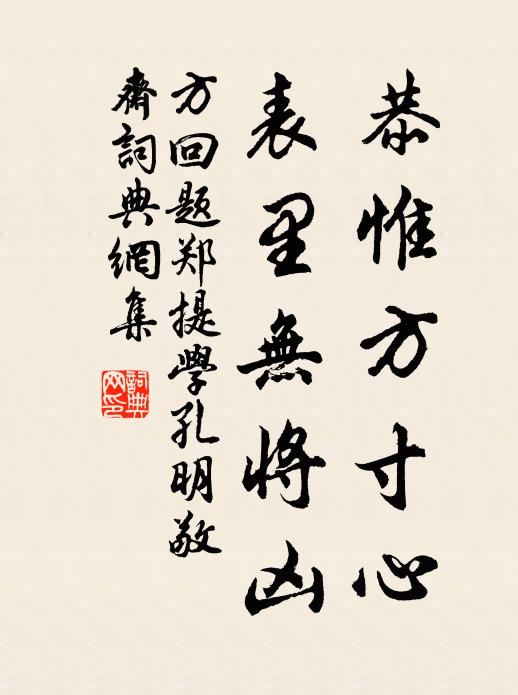 恭惟方寸心
表里無将凶
方回题郑提學孔明敬
齋詞典網集
詞典
网印